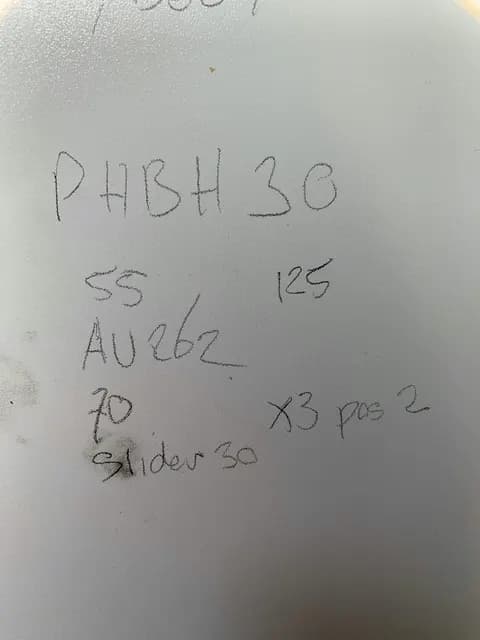 PHBH 30
55 125
AU262
70 x3 pos 2
slider 30